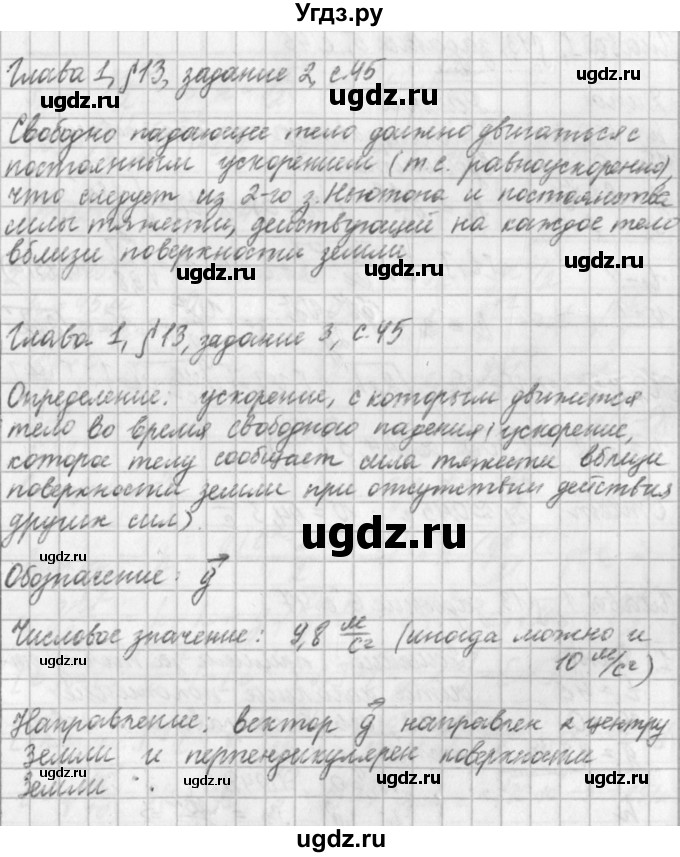 Угдз.ру
Глава 1, §13, задание 2, с.45
ugdz.ru ugdz.ru ugdz.ru
Свободно падающее тело должно двигаться с
постоянным ускорением (т.е. равноускоренно),
что следует из 2-го з. Ньютона и постоянства
силы тяжести, действующей на каждое тело
вблизи поверхности земли
ugdz.ru ugdz.ru ugdz.ru
Глава 1, §13, задание 3, с.45
Определение: ускорение, с которым движется
тело во время свободного падения (ускорение,
которое телу сообщает сила тяжести вблизи
поверхности земли при отсутствии действия
других сил).
ugdz.ru
ugdz.ru
Обозначение: g
Числовое значение: 9,8 м/с2 (иногда можно и
10 м/с2)
ugdz.ru
Направление: вектор g направлен к центру
Земли и перпендикулярен поверхности
Земли.
ugdz.ru ugdz.ru ugdz.ru
ugdz.ru